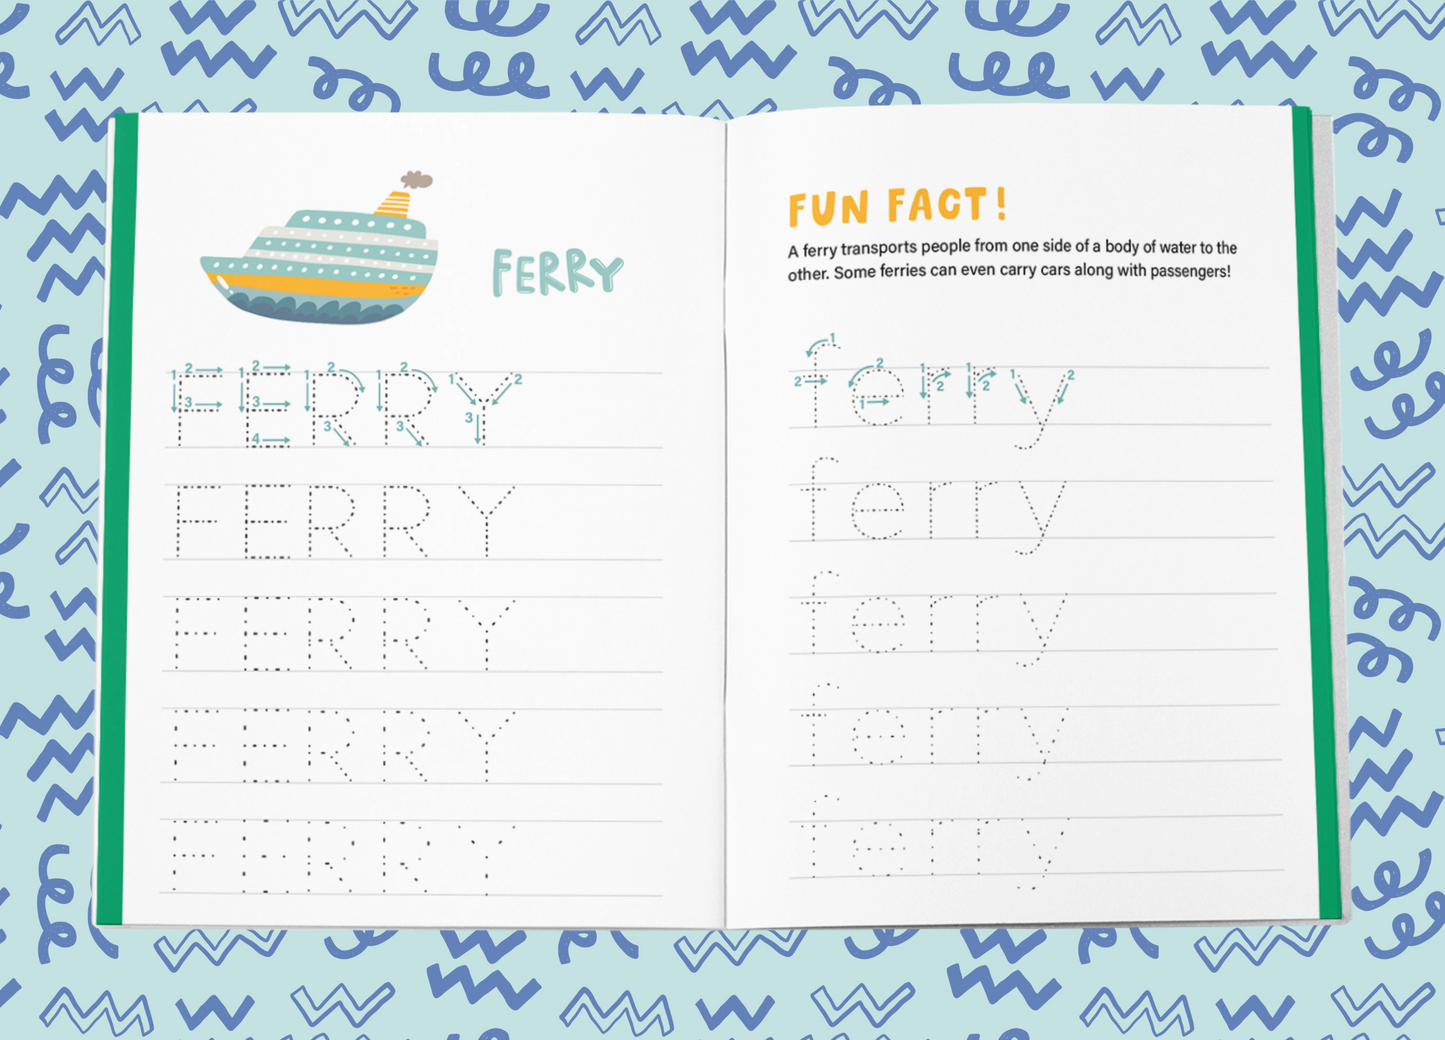 FERRY
FERRY
FERRY
FERRY
FERRY
FERRY
FUN FACT!
A ferry transports people from one side of a body of water to the
other. Some ferries can even carry cars along with passengers!
ferry
ferry
ferry
ferry
ferry